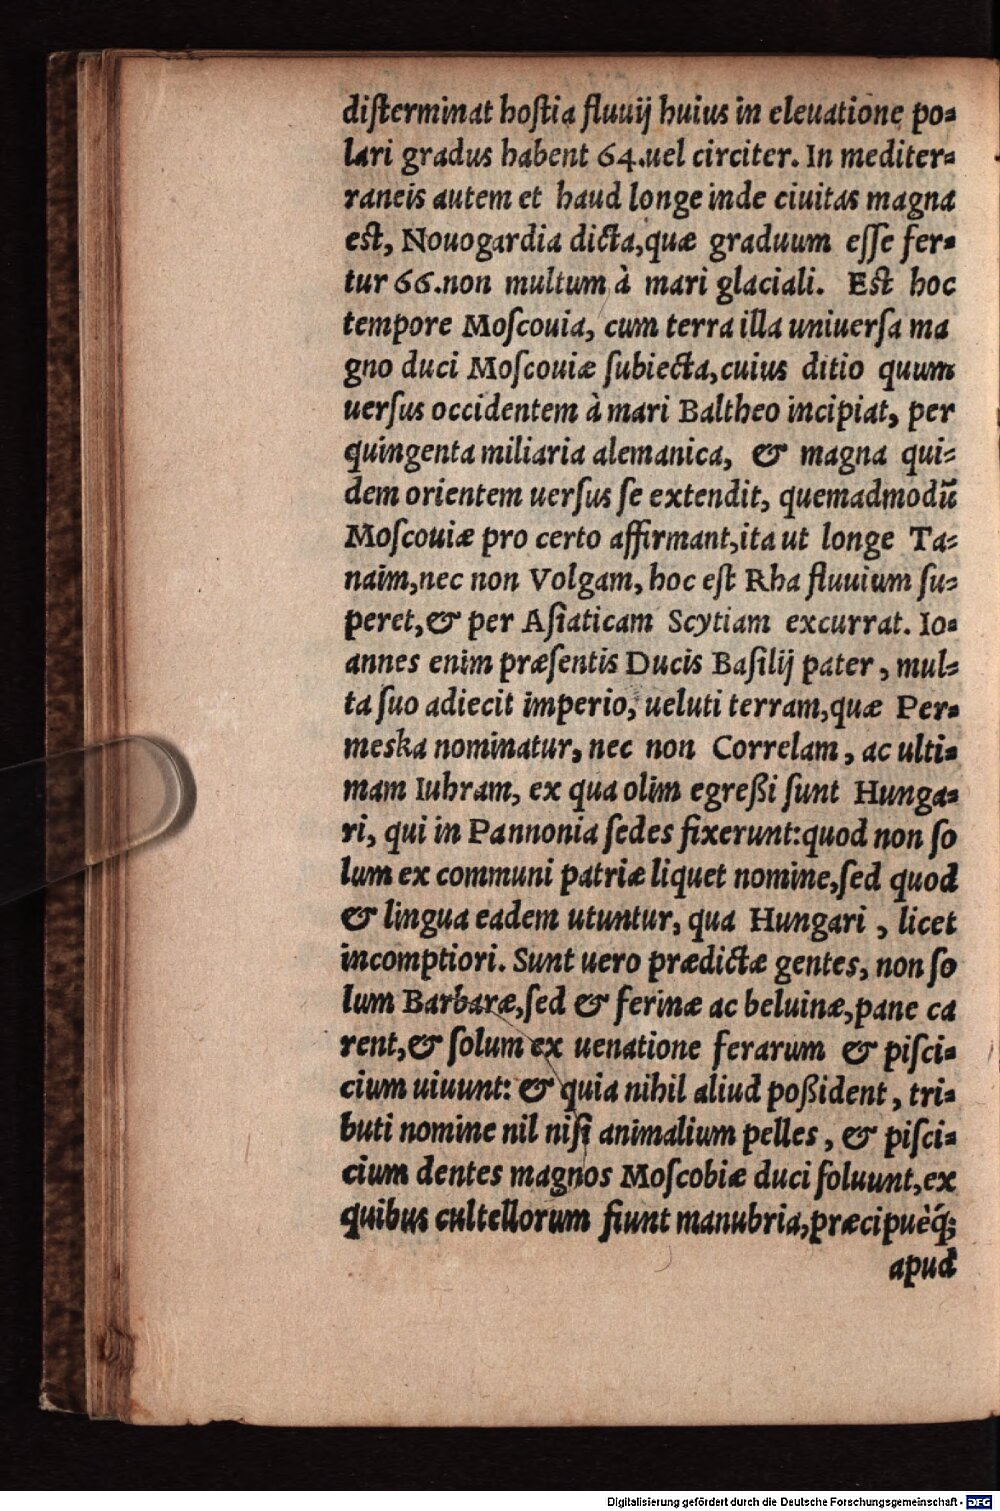 diſterminat hoſtia fluuij huius in eleuatione po⸗
lari gradus habent 64.uel circiter. In mediter⸗
raneis autem et haud longe inde ciuitas magna
eſt, Nouogardia dicta,quæ graduum eſſe fer⸗
tur 66.non multum à mari glaciali. Eſt hoc
tempore Moſcouia, cum terra illa uniuerſa ma
gno duci Moſcouiæ ſubiecta,cuius ditio quum
uerſus occidentem à mari Baltheo incipiat, per
quingenta miliaria alemanica, & magna qui⸗
dem orientem uerſus ſe extendit, quemadmodū
Moſcouiæ pro certo affirmant,ita ut longe Ta⸗
naim,nec non Volgam, hoc eſt Rha fluuium ſu⸗
peret,& per Aſiaticam Scytiam excurrat. Io⸗
annes enim præſentis Ducis Baſilij pater, mul⸗
ta ſuo adiecit imperio, ueluti terram,quæ Per⸗
meska nominatur, nec non Correlam, ac ulti⸗
mam Iuhram, ex qua olim egreßi ſunt Hunga⸗
ri, qui in Pannonia ſedes fixerunt:quod non ſo
lum ex communi patriæ liquet nomine,ſed quod
& lingua eadem utuntur, qua Hungari, licet
incomptiori. Sunt uero prædictæ gentes, non ſo
lum Barbaræ,ſed & ferinæ ac beluinæ,pane ca
rent,& ſolum ex uenatione ferarum & piſci⸗
cium uiuunt: & quia nihil aliud poßident, tri⸗
buti nomine nil niſi animalium pelles, & piſci⸗
cium dentes magnos Moſcobiæ duci ſoluunt,ex
quibus cultellorum fiunt manubria,præcipuèq́;
apud
Digitalisierung gefördert durch die Deutsche Forschungsgemeinschaft - DFG